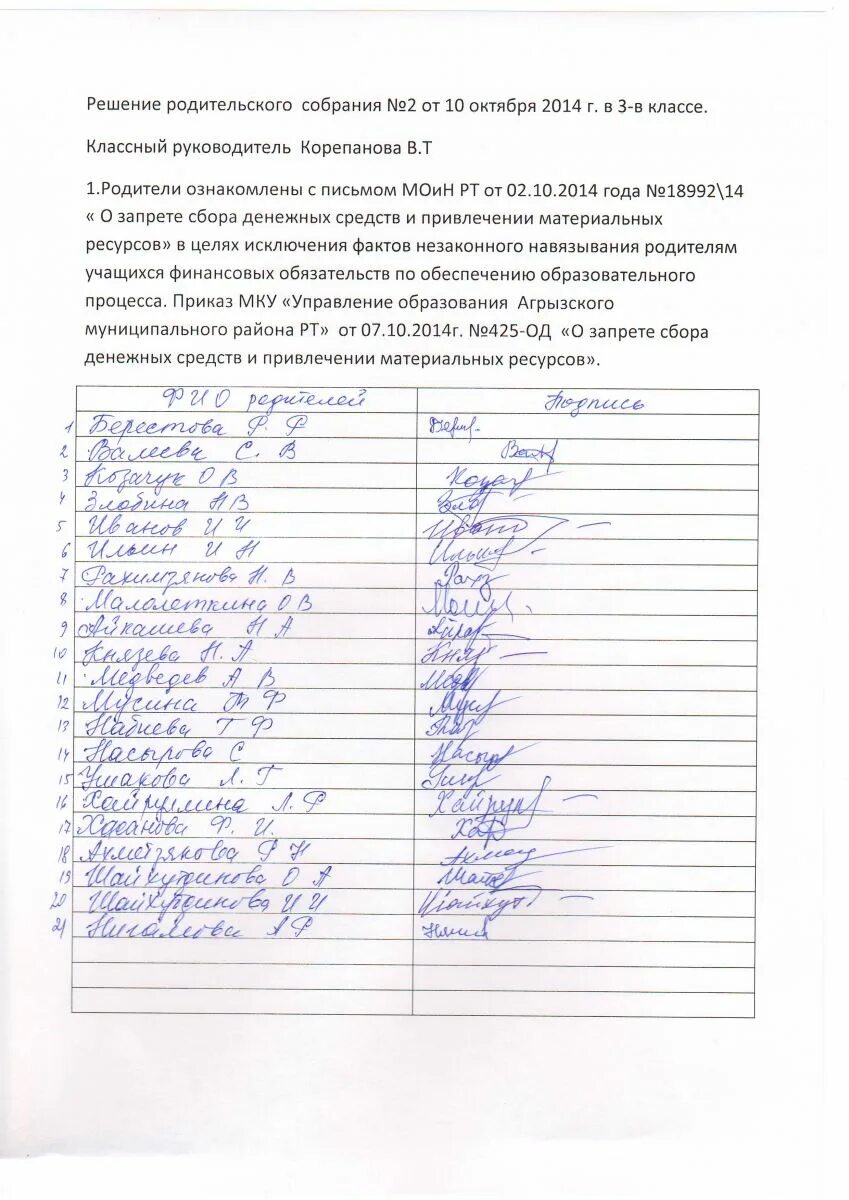 Решение родительского собрания №2 от 10 октября 2014 г. в 3-в классе.
Классный руководитель Корепанова В.Т
1.Родители ознакомлены с письмом МОиН РТ от 02.10.2014 года №18992\14
« О запрете сбора денежных средств и привлечении материальных
ресурсов» в целях исключения фактов незаконного навязывания родителям
учащихся финансовых обязательств по обеспечению образовательного
процесса. Приказ МКУ «Управление образования Агрызского
муниципального района РТ» от 07.10.2014г. №425-ОД «О запрете сбора
денежных средств и привлечении материальных ресурсов».
ФИО родителей Подпись
1 Берестова Р. Р
2 Валеева С. В
3 Козачук О В
4 Злобина Н В
5 Иванов И И
6 Ильин И Н
7 Рахимзянова Н. В
8 Малолеткина О В
9 Айкашева Н А
10 Князева Н. А
11 Медведев А В
12 Мусина Т Ф
13 Набиева Г Ф
14 Насырова С
15 Ушакова Л. Г
16 Хайруллина Л. Р
17 Хасанова Ф. И.
18 Ахметзянова Р Н
19 Шайхутдинова О А
20 Шайхутдинова И И
21 А Р